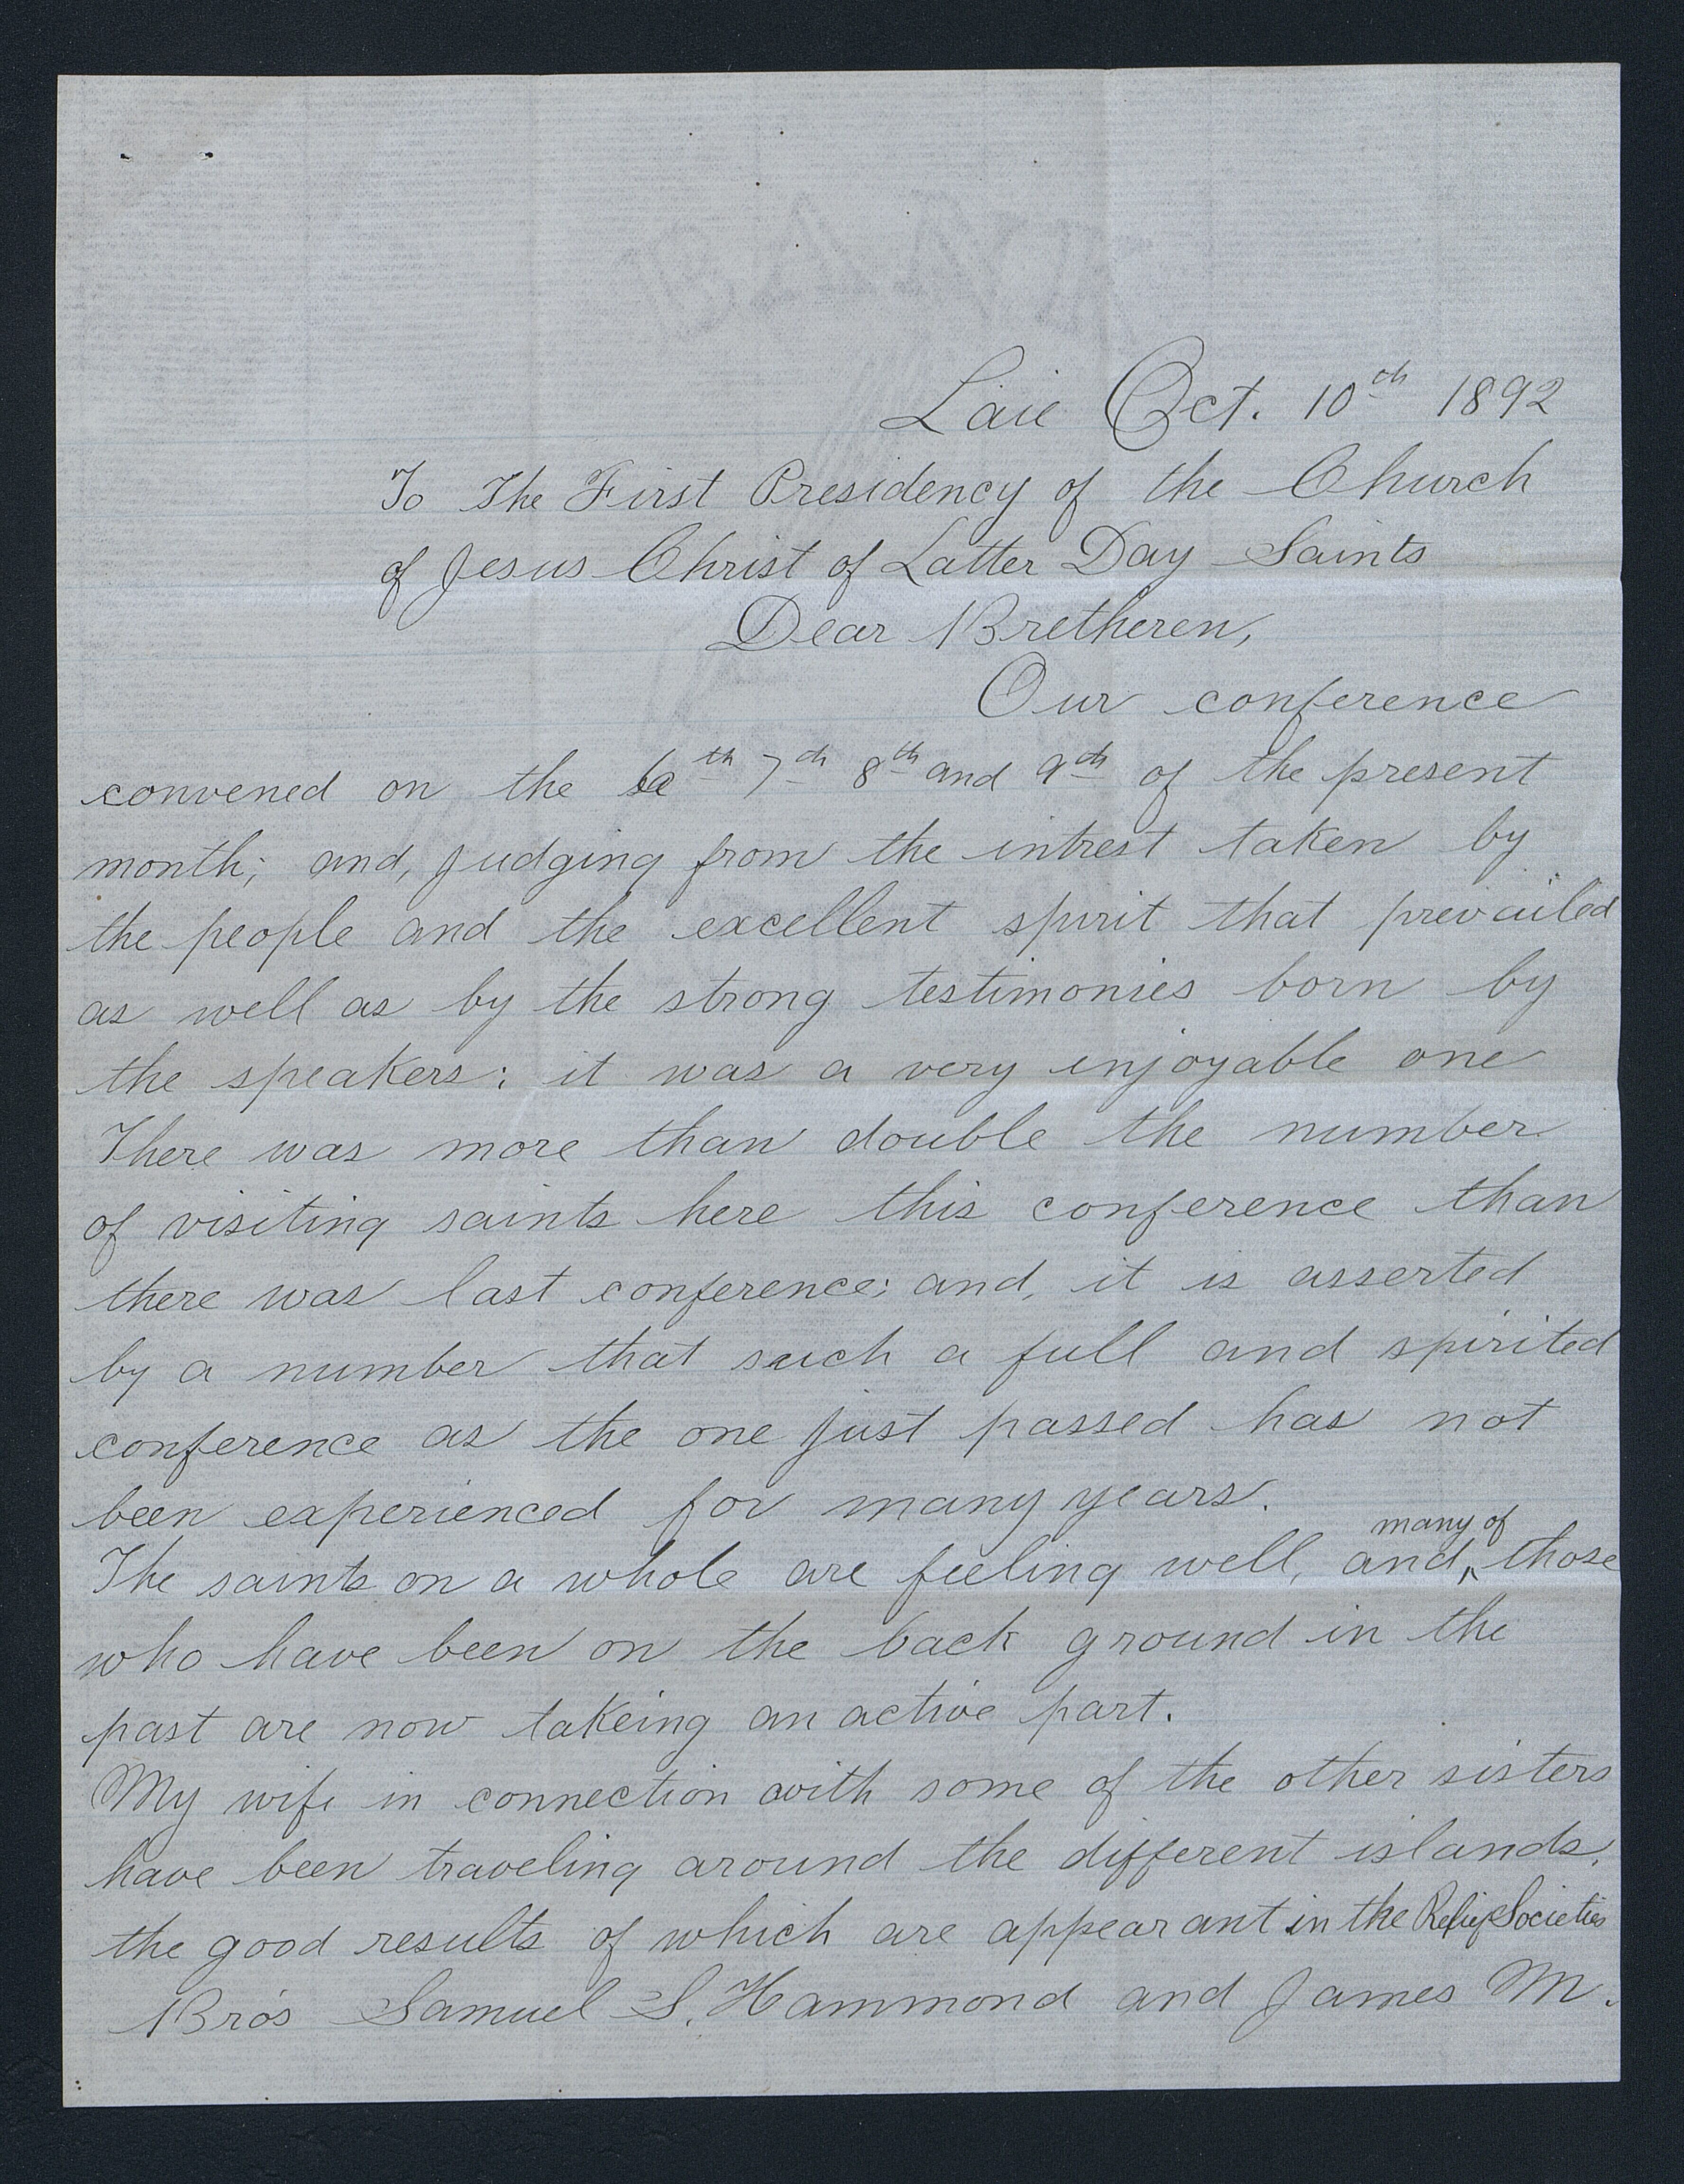 Laie Oct. 10th 1892
To The First Presidency of the Church
of Jesus Christ of Latter Day Saints
Dear Bretheren,
Our conference
convened on the 6th 7th 8th and 9th of the present
month; and, judging from the intrest taken by
the people and the excellent spirit that prevailed
as well as by the strong testimonies born by
the speakers; it was a very enjoyable one
There was more than double the number
of visiting saints here this conference than
there was last conference; and, it is asserted
by a number that such a full and spirited
conference as the one just passed has not
been experienced for many years.
many of
The saints on a whole are feeling well, and, those
who have been on the back ground in the
past are now takeing an active part.
My wife in connection with some of the other sisters
have been traveling around the different islands,
the good results of which are appearant in the Relief Societies
Bro's Samuel S. Hammond and James M.